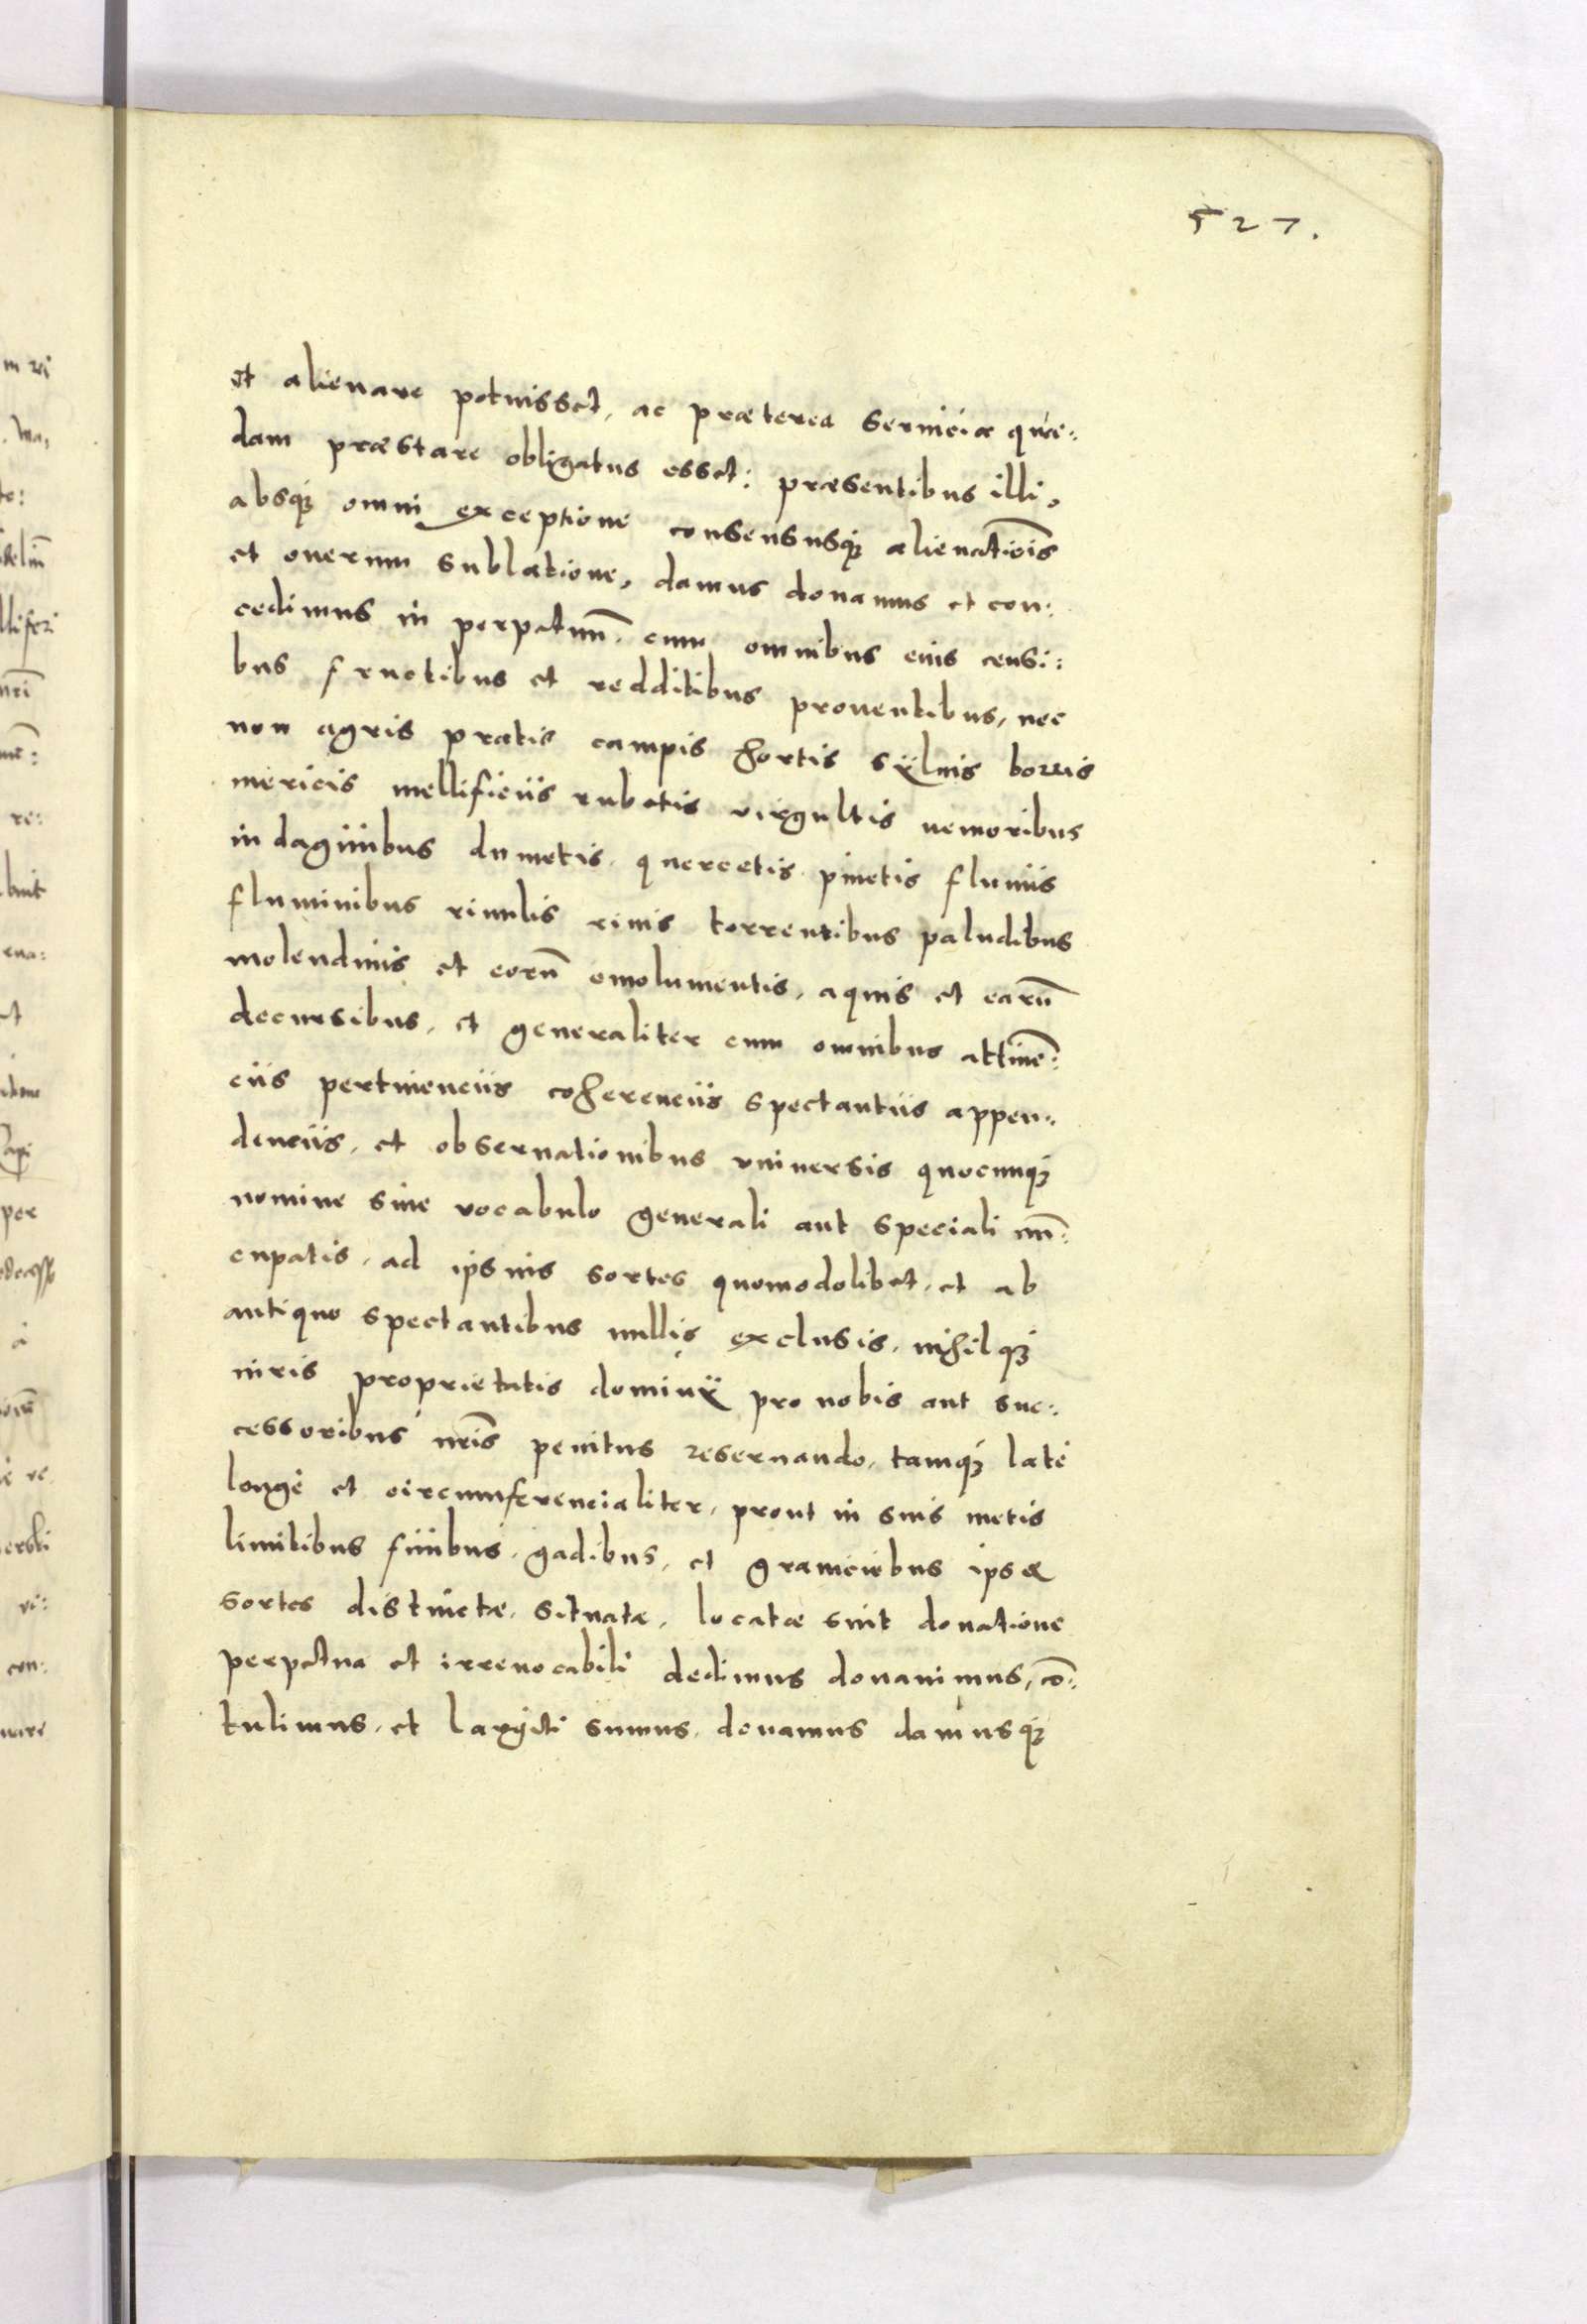 527.
et alienare potuisset, ac præterea seruicia quæ:
dam præstare obligatus esset: præsentibus illi,
absq3 omni exceptione consensusq3 alienatiōis
et onerum sublatione, damus donamus et con:
cedimus in perpetuū. cum omnibus eius censi:
bus fructibus et redditibus prouentibus, nec
non agris pratis campis hortis sÿluis borris
mericis mellificiis rubetis virgultis nemoribus
indaginibus dumetis. quercetis. pinetis fluuiis
fluminibus riuulis riuis torrentibus paludibus
molendinis et eorū emolumentis, aquis et earū
decursibus, et generaliter cum omnibus attinē:
ciis pertinenciis coherenciis spectantiis appen:
denciis, et obseruationibus vniuersis quocunq3
nomine siue vocabulo generali aut speciali nū:
cupatis, ad ipsius sortes quomodolibet, et ab
antiquo spectantibus nullis exclusis, nihilq3
iuris proprietatis dominÿ pro nobis aut suc:
cessoribus nr̄is penitus reseruando, tamq3 late
longe et circumferencialiter, prout in suis metis
limitibus finibus, gadibus, et graniciebus ipsæ
sortes distinctæ, situatæ, locatæ sint donatione
perpetua et irreuocabili dedimus donauimus, cō:
tulimus, et largiti sumus, donamus damusq3